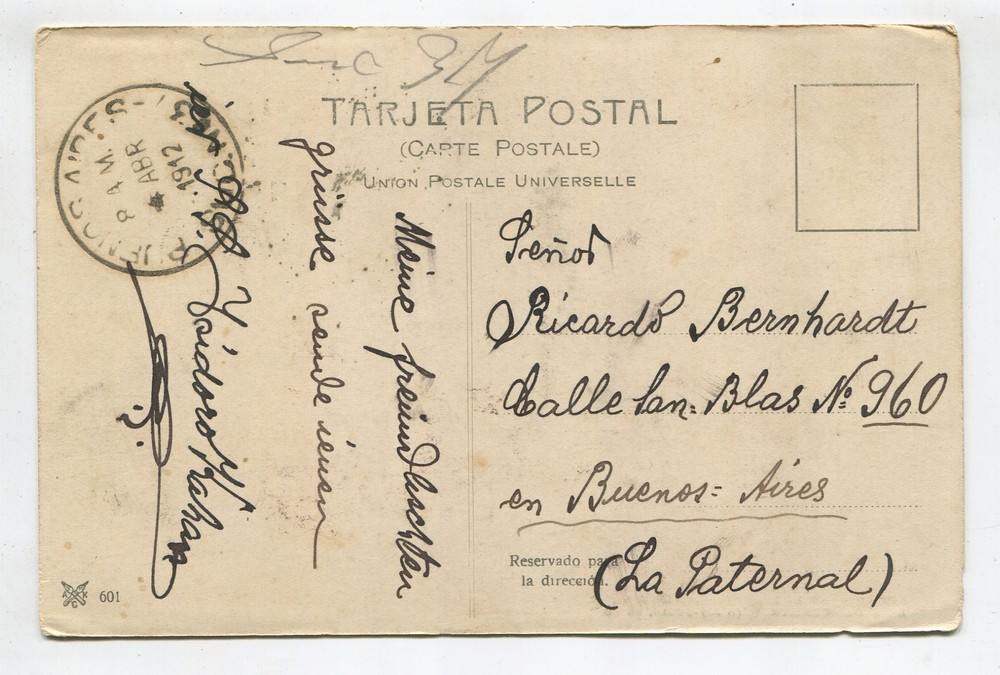 TARJETA POSTAL
(CARTE POSTALE)
UNION POSTALE UNIVERSELLE
BUENOS AIRES
8 A.M.
ABR
1912
Meine freundlischten
grüsse sende ienen
Isidoro Kahan
Señor
Ricardo Bernhardt
Calle San= Blas Nº 960
en Buenos= Aires
(La Paternal)
Reservado para
la dirección.
601